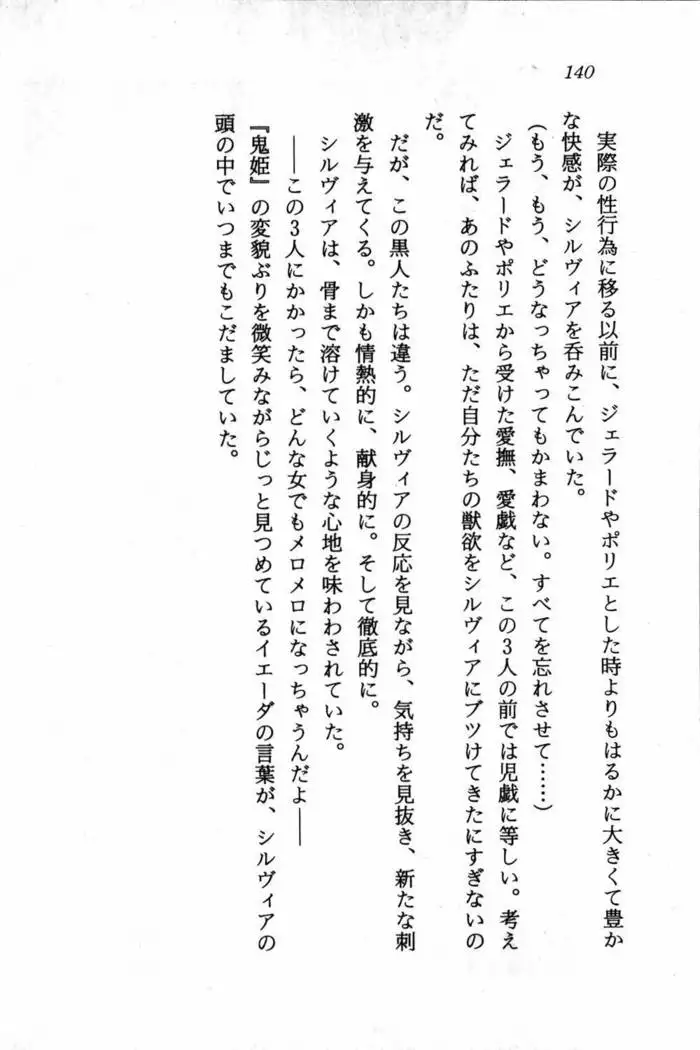 140
実際の性行為に移る以前に、ジェラードやポリエとした時よりもはるかに大きくて豊か
な快感が、シルヴィアを呑みこんでいた。
(もう、もう、どうなっちゃってもかまわない。すべてを忘れさせて……)
ジェラードやポリエから受けた愛撫、愛戯など、この3人の前では児戯に等しい。考え
てみれば、あのふたりは、ただ自分たちの獣欲をシルヴィアにブツけてきたにすぎないの
だ。
だが、この黒人たちは違う。シルヴィアの反応を見ながら、気持ちを見抜き、新たな刺
激を与えてくる。しかも情熱的に、献身的に。そして徹底的に。
シルヴィアは、骨まで溶けていくような心地を味わわされていた。
――この3人にかかったら、どんな女でもメロメロになっちゃうんだよ――
『鬼姫』の変貌ぶりを微笑みながらじっと見つめているイエーダの言葉が、シルヴィアの
頭の中でいつまでもこだましていた。